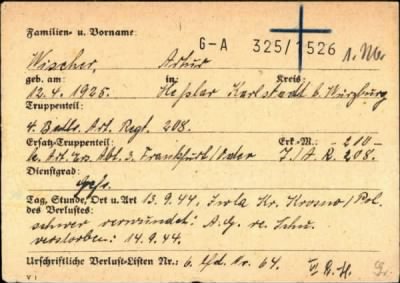 Familien- u. Vorname:
G-A 325/1526
Wischer, Artur
geb. am: in: Kreis:
12.4.1925. Heßlar Karlstadt b. Würzburg
Truppenteil:
4. Battr. Art. Regt. 208.
Ersatz-Truppenteil: Erk.-M.: - 210 -
le. Art. Ers. Abt. 3. Frankfurt/Oder J./A.R. 208.
Dienstgrad:
Gefr.
Tag, Stunde, Ort u. Art 13.9.44. Iwla Kr. Krosno/Pol.
des Verlustes:
schwer verwundet: A.G. re. Schu.
verstorben: 14.9.44.
Urschriftliche Verlust-Listen Nr.: 6 lfd. Nr. 64.
V 1